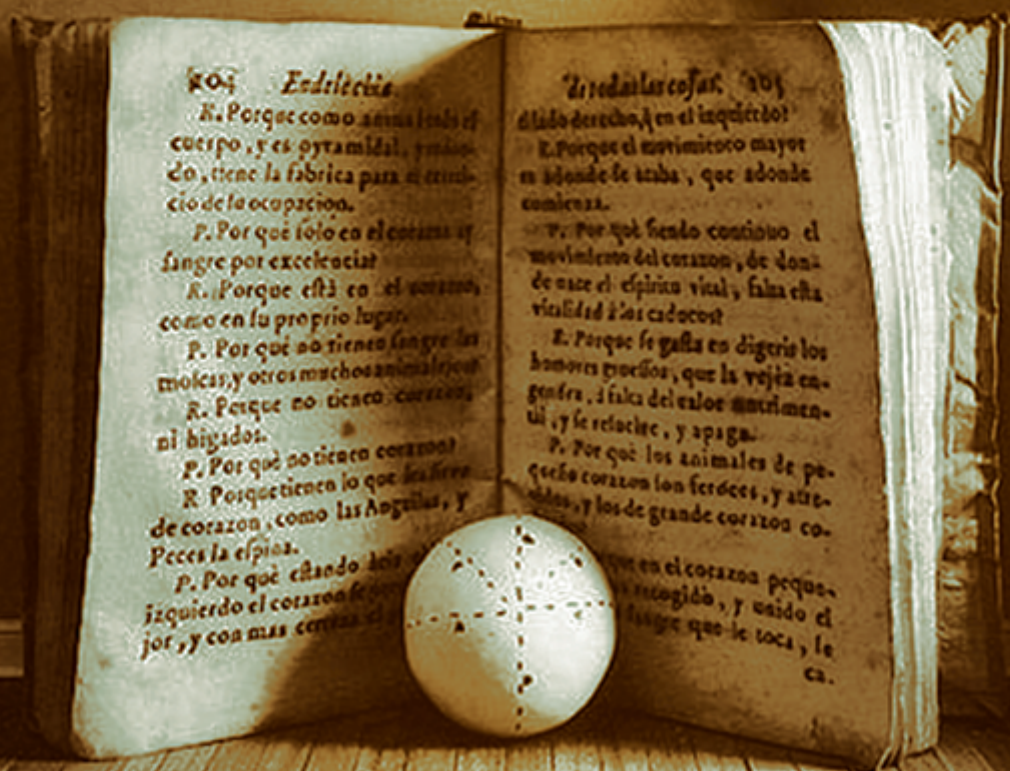 204 Endelechia
R. Porque como anima todo el
cuerpo, y es pyramidal,
do, tiene la fabrica para el
cio de la ocupacion.
P. Por què solo en el corazon ay
sangre por excelencia?
R. Porque està en el corazon,
como en su proprio lugar.
P. Por què no tienen sangre las
moscas, y otros muchos animalejos?
R. Porque no tienen corazon,
ni higados.
P. Por què no tienen corazon?
R Porque tienen lo que les sirve
de corazon, como las Anguilas, y
Peces la espina.
P. Por què estando
izquierdo el corazon se
jor, y con mas certeza el
De todas las cosas. 205
el lado derecho, q̃ en el izquierdo?
R. Porque el movimiento mayor
es adonde se acaba, que adonde
comienza.
P. Por què siendo continuo el
movimiento del corazon, de don-
de nace el espiritu vital, falta esta
vitalidad à los caducos?
R. Porque se gasta en digerir los
humores gruessos, que la vejez en-
gendra, à falta del calor nutrimen-
tal, y se refuelve, y apaga.
P. Por què los animales de pe-
queño corazon son feroces, y atre-
vidos, y los de grande corazon co-
que en el corazon peque-
recogido, y unido el
sangre que le toca, se
ca.